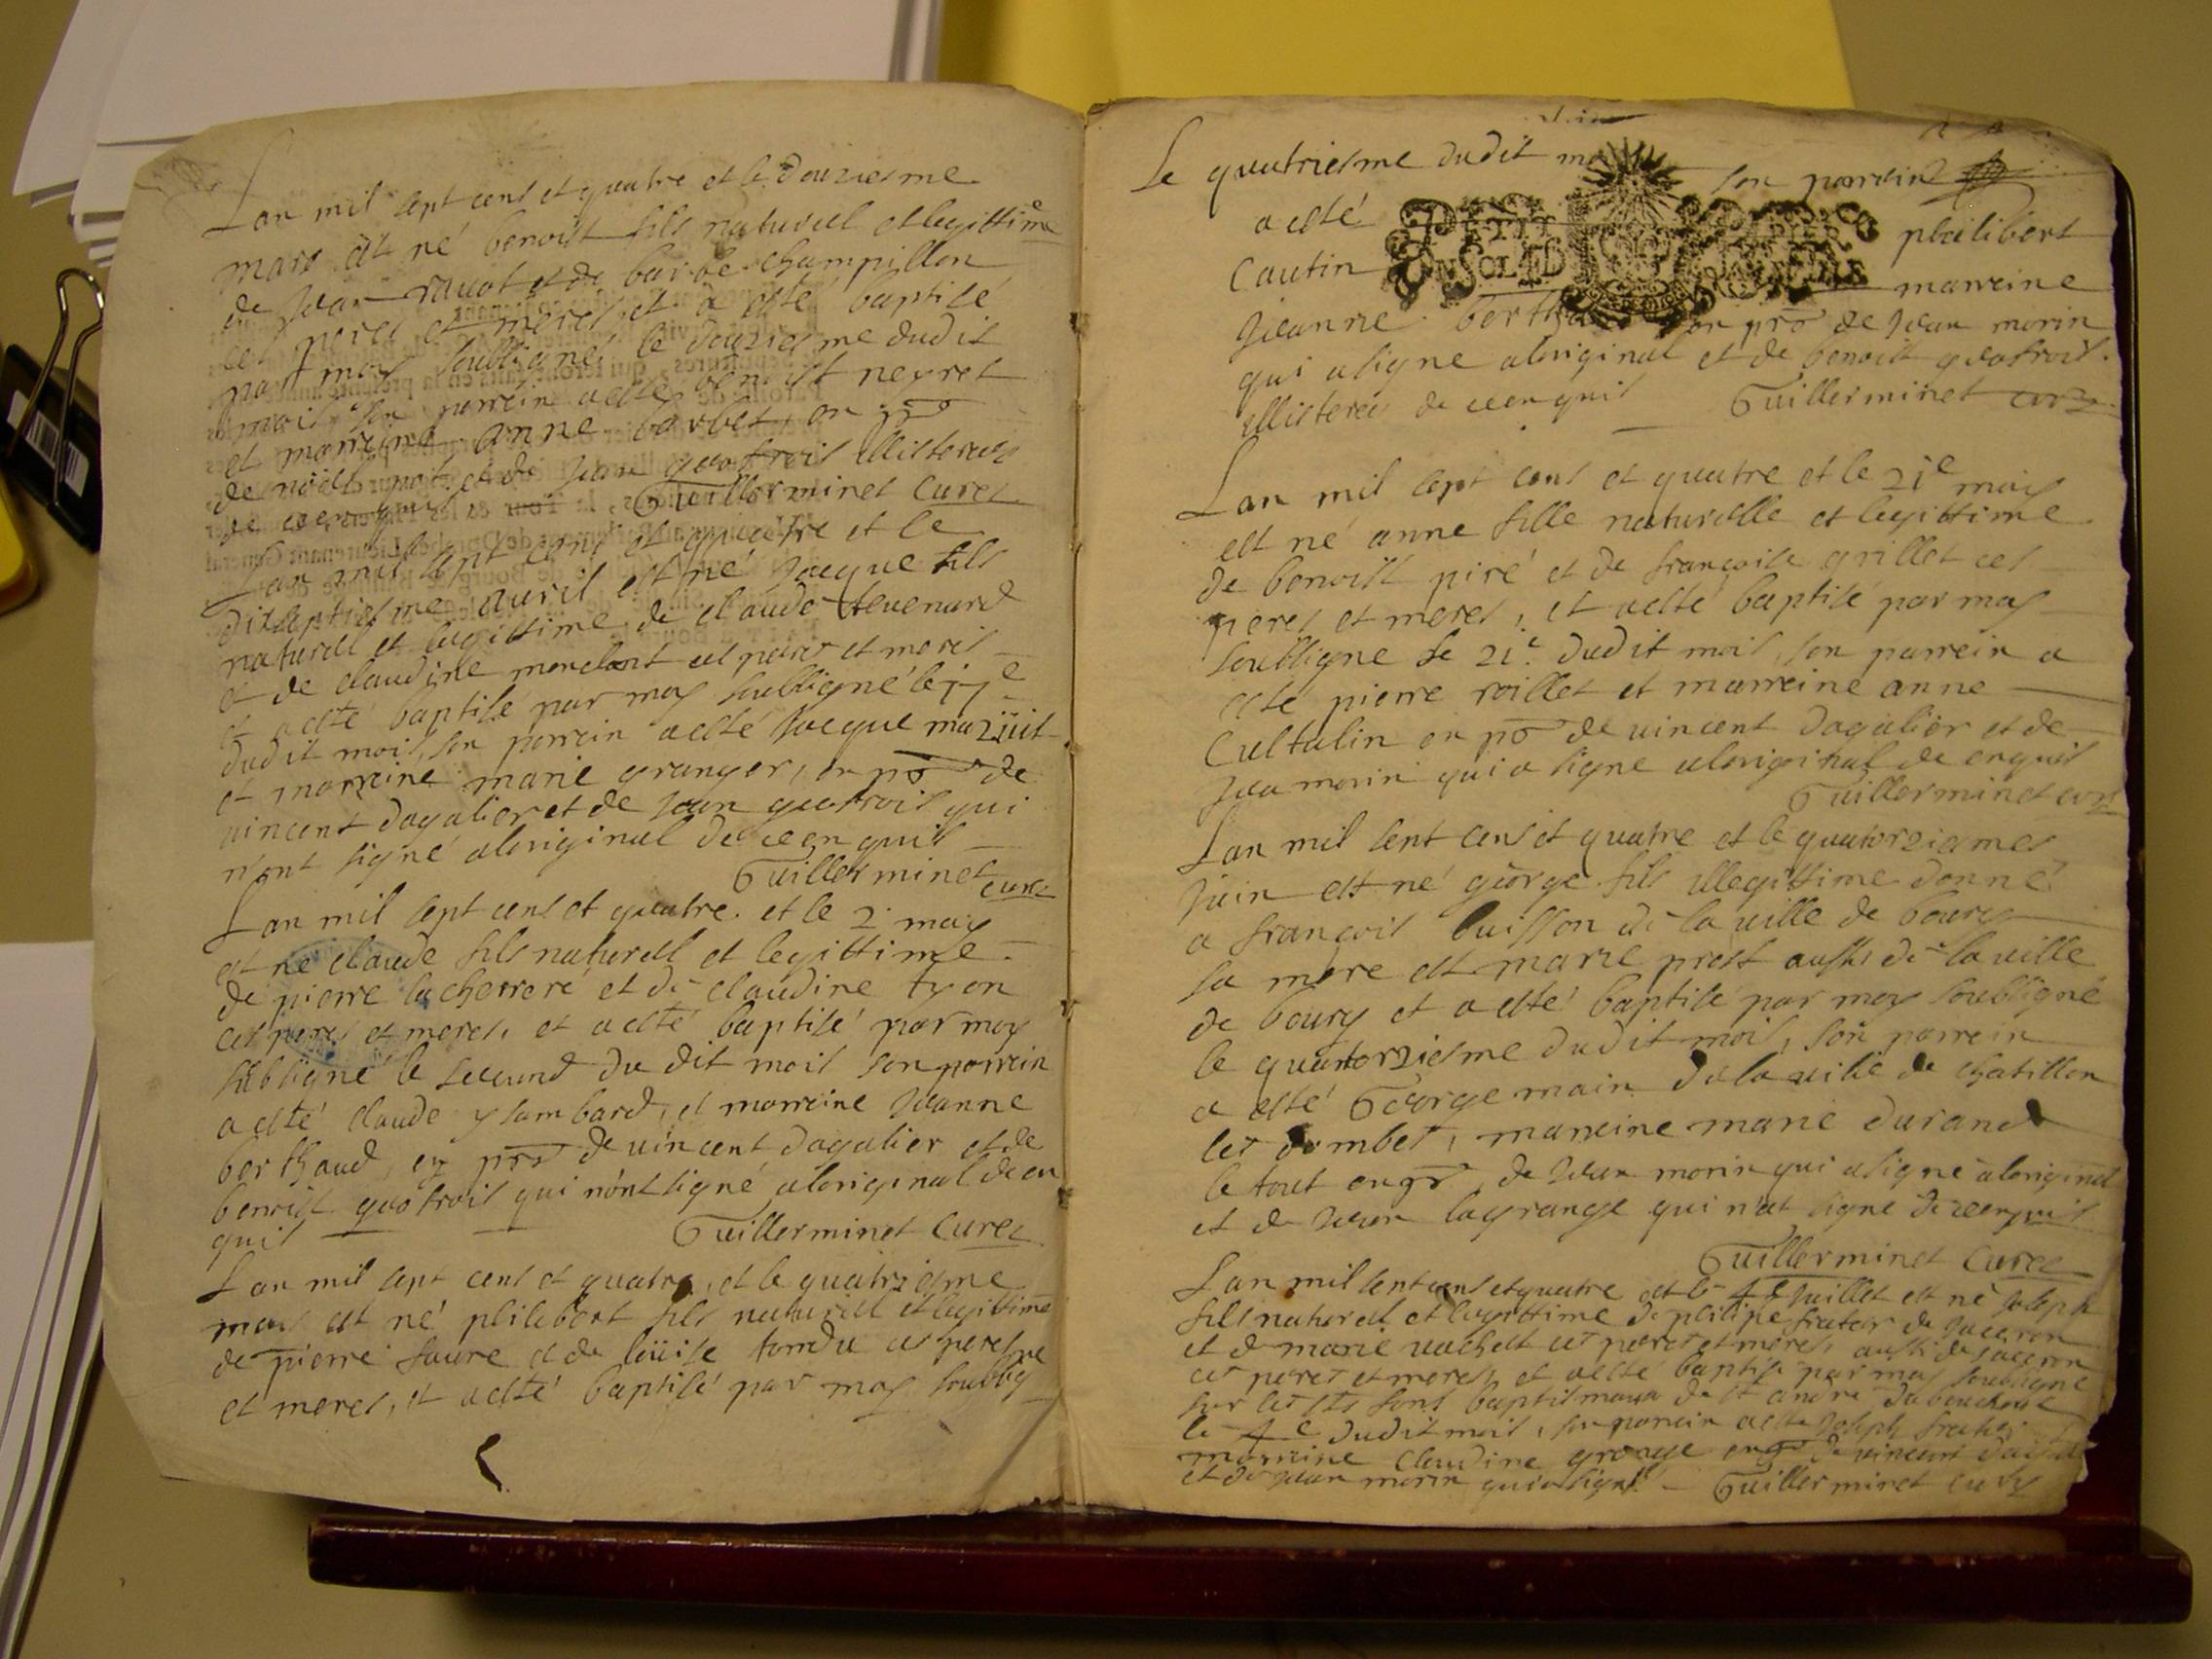 Lan mil sept cens et quatre et le douziesme
mars est né benoist fils naturel et legittime
de Jean rauot et de barbe champillon
ces peres et meres, et a esté baptisé
par moy soubsigné le douziesme dudit
mois son parrein a esté benoist neyret
et marreine anne barbet, en pro
de et de Jean quatrois illisteres
de ce enquis Guillerminet Curez
Lan mil sept cens et quatre et le
dixseptiesme auril est né Jacque fils
naturel et legittime de claude teuenard
et de claudine ces peres et meres
et a esté baptisé par moy soubsigné le 17e
dudit mois, son parrein a esté Jacque mazüit
et marreine marie granger, en pro de
uincent dagalier et de Jean quatrois qui
n'ont signé aloriginal de ce enquis
Guillerminet curez
Lan mil sept cens et quatre et le 2 may
est né claude fils naturel et legittime
de pierre lacherrere et de claudine tyon
ces peres et meres, et a esté baptisé par moy
subsigné le second du dit mois son parrein
a esté claude ysambard, et marreine Jeanne
berthaud, en pro de uincent dagalier et de
benoist quatrois qui n'ont signé aloriginal de en
quis Guillerminet Curez
Lan mil sept cens et quatre, et le quatriesme
may est né philibert fils naturel et legittime
de pierre faure et de loüise tondu ces peres
et meres, et a esté baptisé par moy soubsig
ne
Le quatriesme dudit mois son parrein
a esté philibert
Cautin marreine
Jeanne bertha en pro de Jean morin
qui a signé aloriginal et de benoist quatrois
illisteres de ce enquis Guillerminet curez
PETIT PAPIER
UN SOL 4 D LA FEUILLE
Lan mil sept cens et quatre et le 21e may
est né anne fille naturelle et legittime
de benoist piré et de françoise grillet ces
peres et meres, et a esté baptisé par moy
soubsigne le 21e dudit mois, son parrein a
esté pierre roillet et marreine anne
Cultalin en pro de uincent dagalier et de
Jean morin qui a signe aloriginal de enquis
Guillerminet curez
Lan mil sept cens et quatre et le quatorziesme
Juin est né george fils illegittime donné
a françois buisson de la uille de bourg
sa mere est marie prost aussi de la uille
de bourg et a esté baptisé par moy soubsigné
le quatorziesme dudit mois, son parrein
a esté George main de la uille de chatillon
les dombes, marreine marie durand
le tout en pro de Jean morin qui a signé aloriginal
et de Jean lagrange qui n'at signe de ce enquis
Guillerminet Curez
Lan mil sept cens et quatre et le 4e Juillet est né Joseph
fils naturel et legittime de philipe frater de Jaceron
et de marie uachelt ces peres et meres, aussi de Jaceron
ces peres et meres, et a esté baptisé par moy soubsigné
sur les sts fons baptismaux de st andre du bouchoux
le 4e dudit mois, son parrein a esté Joseph frater
marreine claudine grange en pro de uincent dagalier
et de Jean morin qui a signé Guillerminet curez